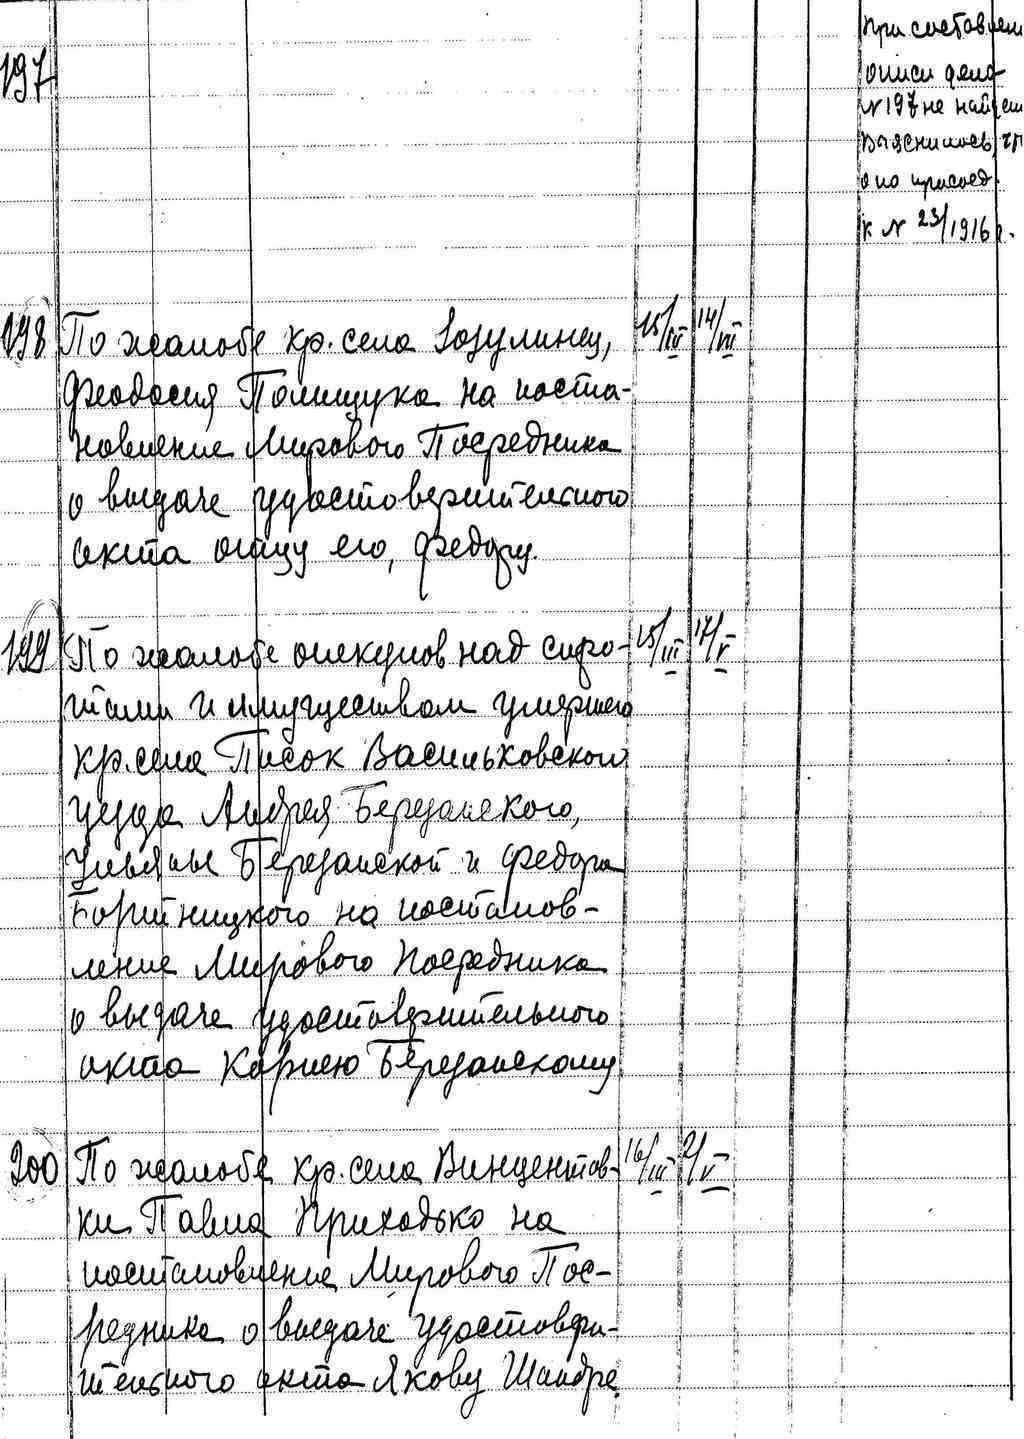 197
При составлени
описи дело
№ 197 не найден
Выяснилось, чт
оно присоед.
к № 23/1916 г.
198 По жалобе кр. села Зозулинец, 15/III 14/VII
Феодосия Полищука на поста-
новление Мирового Посредника
о выдаче удостоверительного
акта отцу его, Федору.
199 По жалобе опекунов над сиро- 15/III 17/V
тами и имуществом умершего
кр. села Писок Васильковского
уезда Андрея Березанского,
Ульяны Березанской и Федора
на постанов-
ление Мирового Посредника
о выдаче удостоверительного
акта Корнею Березанскому
200 По жалобе кр. села Винцентов- 16/III 2/V
ки Павла Приходько на
постановление Мирового Пос-
редника о выдаче удостовери-
тельного акта Якову Шандре.